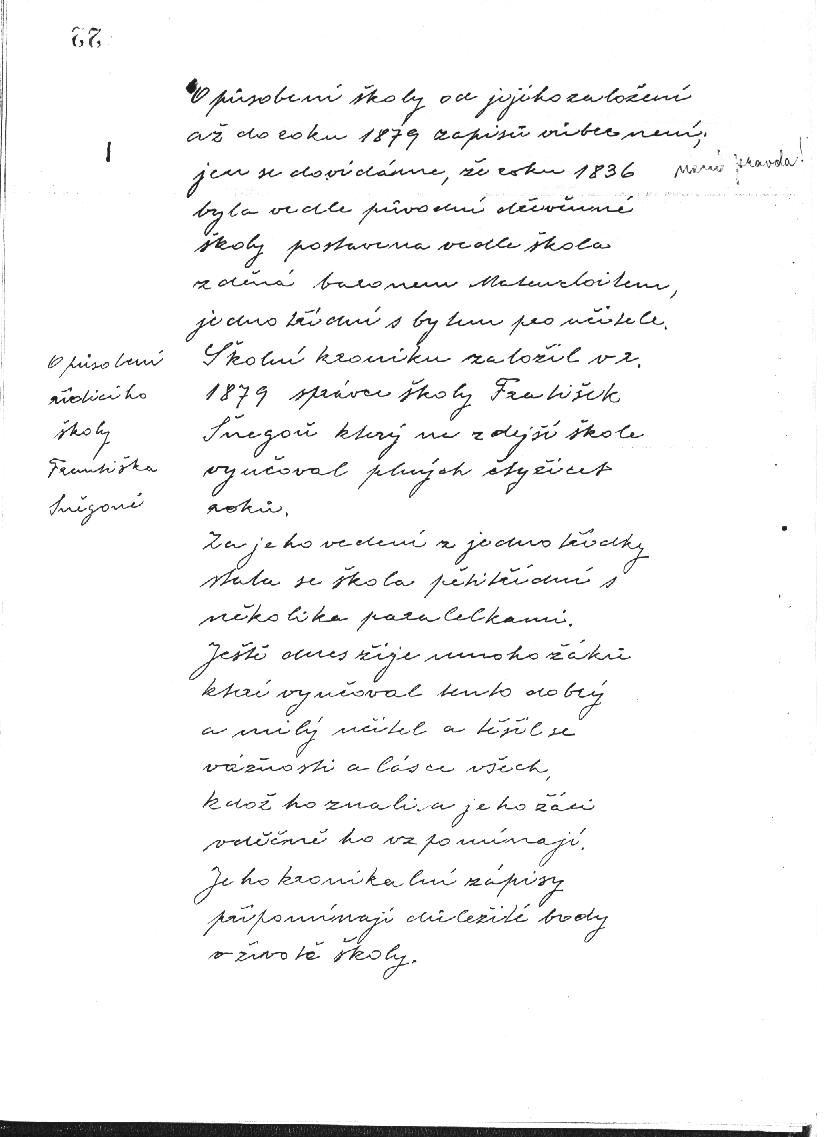 22
O působení školy od jejího založení
až do roku 1879 zápisů vůbec není;
jen se dovídáme, že roku 1836
není pravda!
byla vedle původní dřevěnné
školy postavena vedle škola
zděná baronem Matencloitem,
jednotřídní s bytem pro učitele.
Školní kroniku založil v r.
1879 správce školy František
Sněgoň který na zdejší škole
vyučoval plných čtyřicet
roků.
O působení
řídícího
školy
Františka
Sněgoně
Za jeho vedení z jednotřídky
stala se škola pětitřídní s
několika paralelkami.
Ještě dnes žije mnoho žáků
kteří vyučoval tento dobrý
a milý učitel a těšil se
vážnosti a lásce všech,
kdož ho znali a jeho žáci
vděčně ho vzpomínají.
Jeho kronikální zápisy
připomínají důležité body
v životě školy.